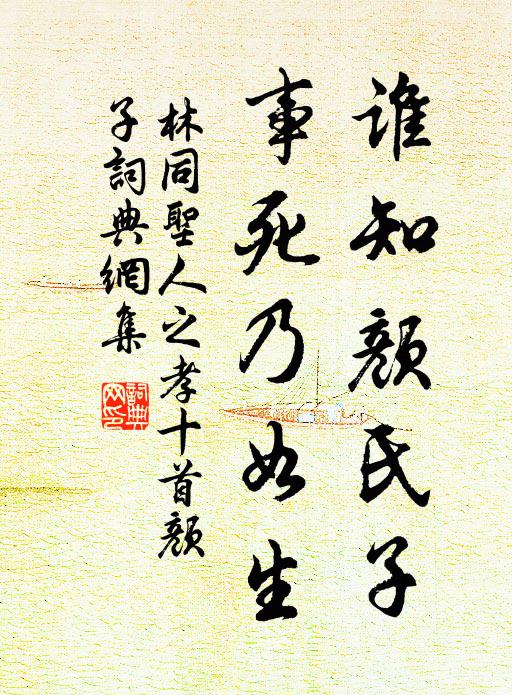 誰知顏氏子
事死乃如生
林同聖人之孝十首顏
子詞典網集
詞典
网印